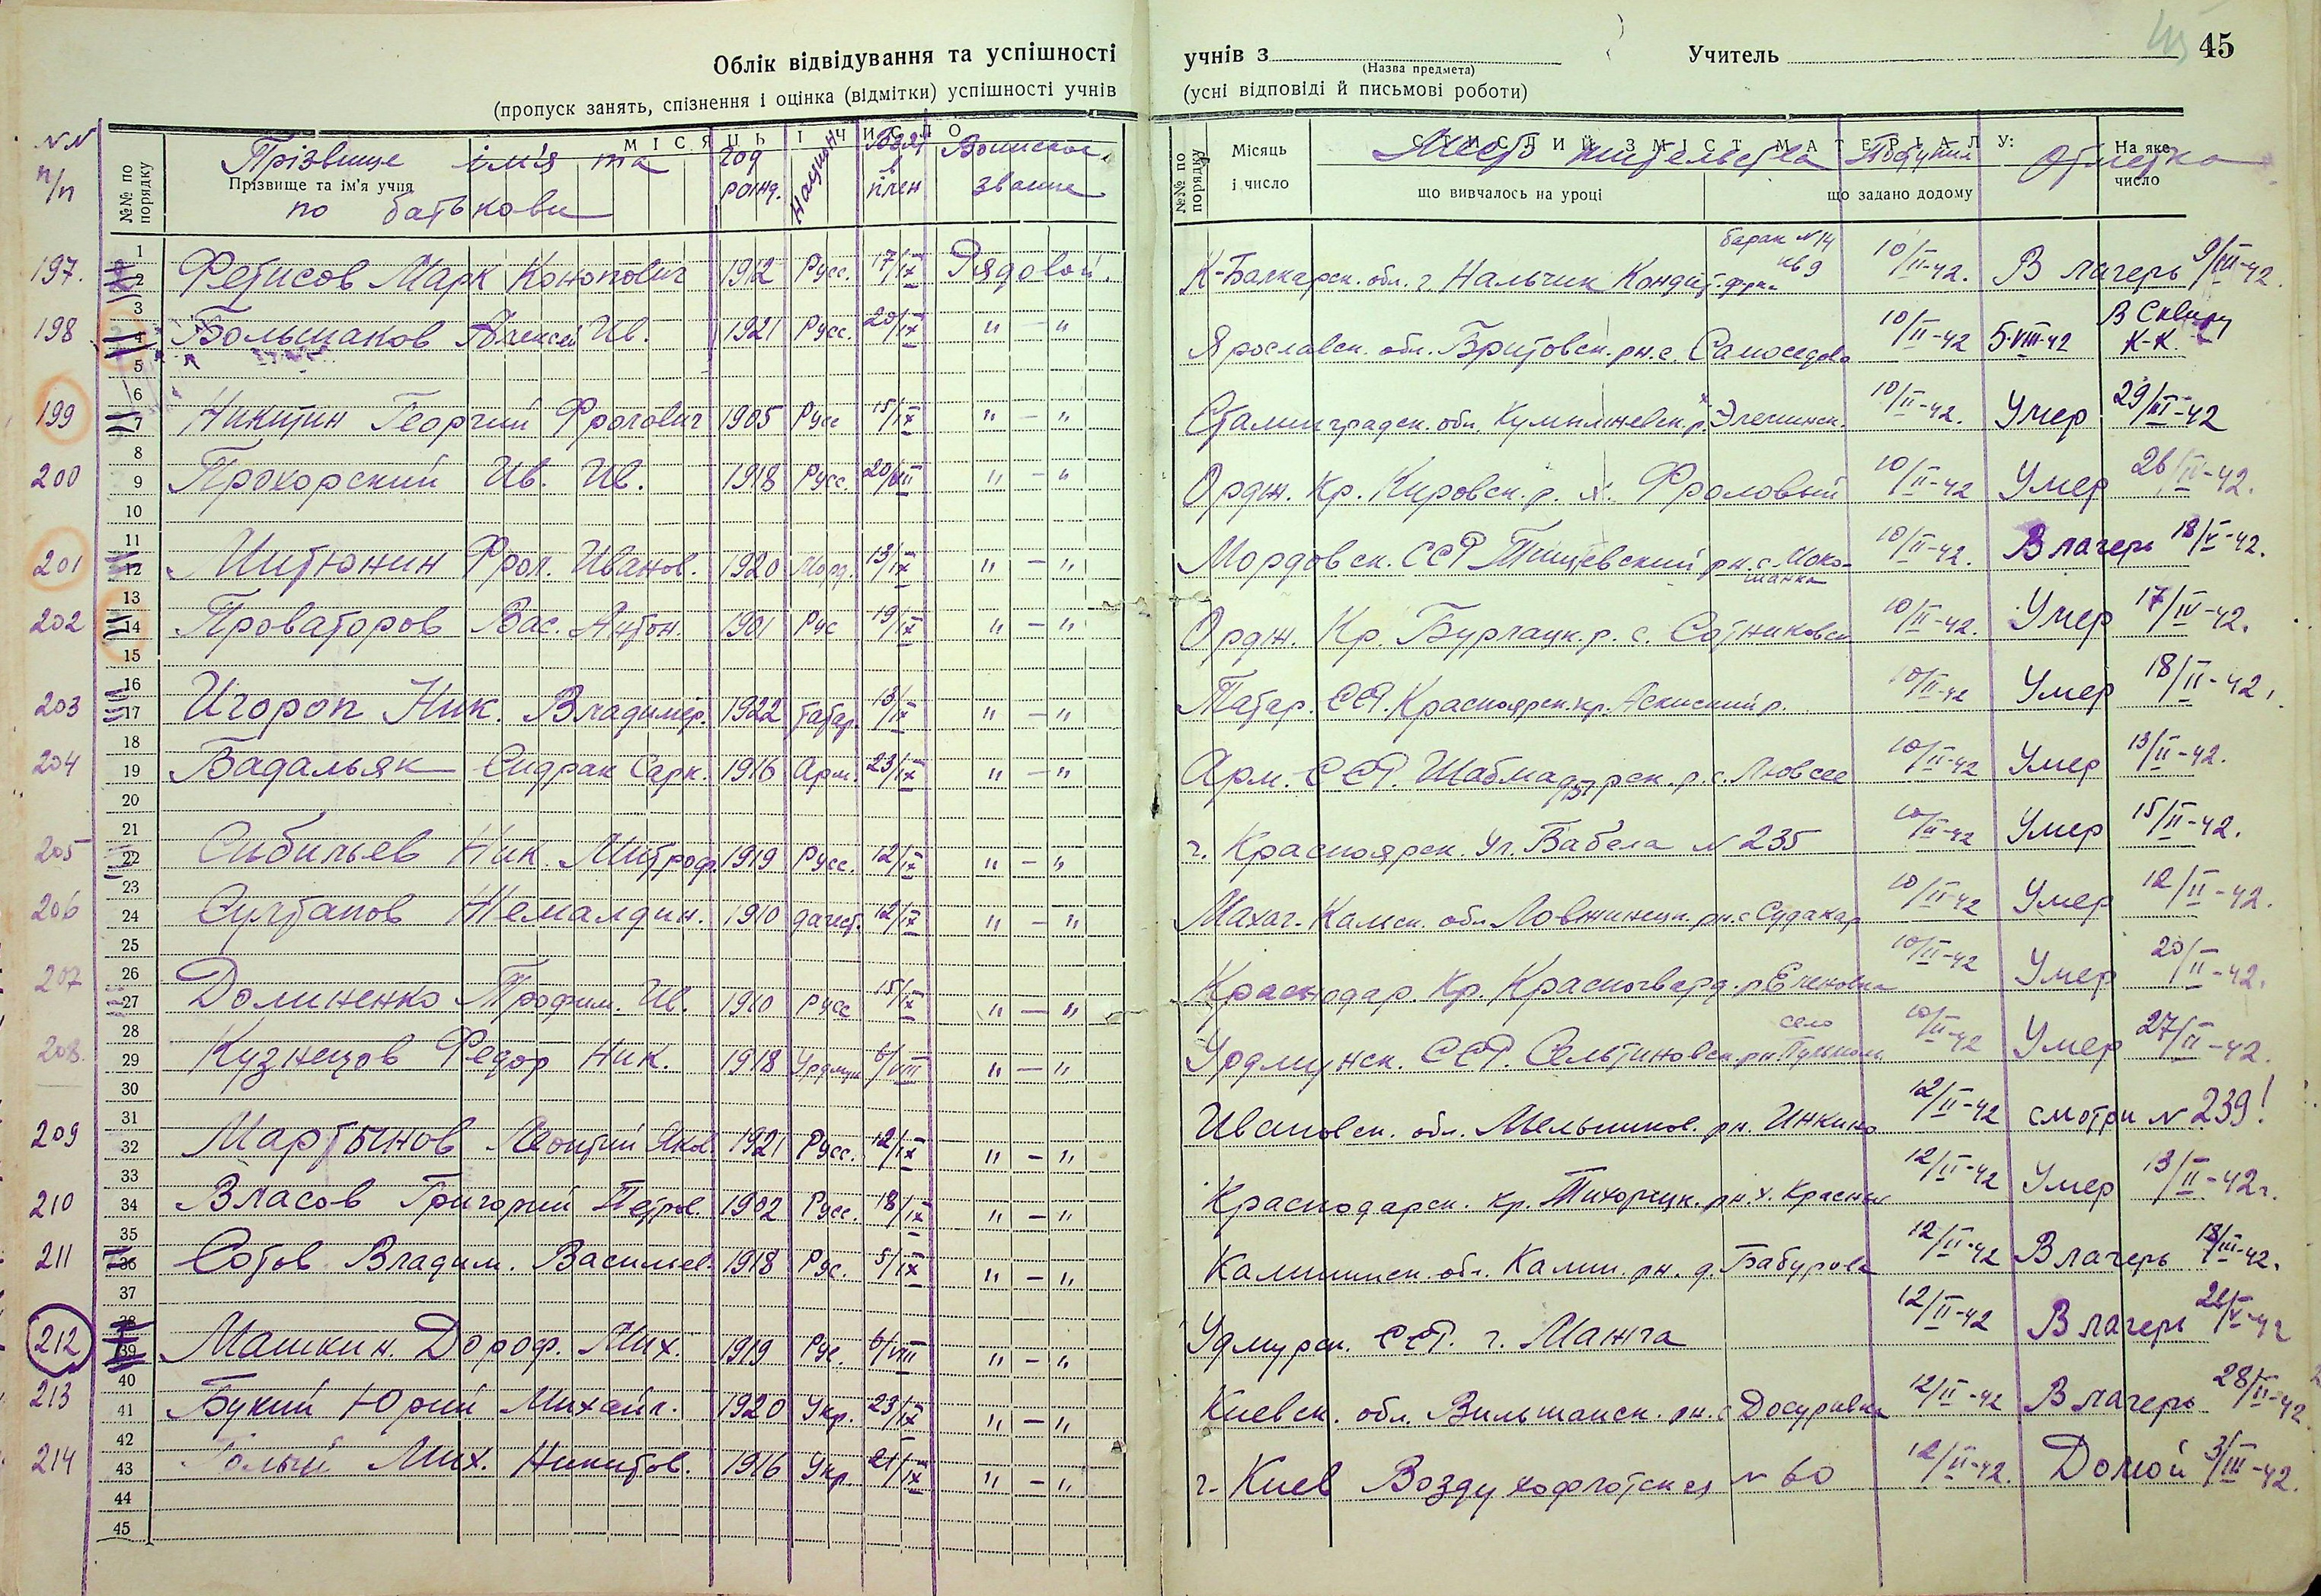 Облік відвідування та успішності учнів з (Назва предмета) Учитель 45
(пропуск занять, спізнення і оцінка (відмітки) успішності учнів (усні відповіді й письмові роботи)
№№ п/п №№ по порядку Прізвище ім'я та по батькови Прізвище та ім'я учня МІСЯЦЬ І ЧИСЛО Год рожд. Национ. Взят в плен Воинское звание
№№ по порядку Місяць і число СТИСЛИЙ ЗМІСТ МАТЕРІАЛУ: Место жительства що вивчалось на уроці Поступил що задано додому Отметка На яке число
197. Фетисов Марк Конопович 1912 Русс. 17/IX Рядовой. К-Балкарск. обл. г. Нальчик Кондит. фрк. барак №14 кв 9 10/II-42. В лагерь 9/III-42.
198 Большаков Алексей Ив. 1921 Русс. 20/IX " — " Ярославск. обл. Бритовск. рн. с. Самоседово 10/II-42 5-VIII-42 В Сквиру К-К
199 Никитин Георгий Фролович 1905 Русс 15/IX " — " Сталинградск. обл. Кумылженск. р. 10/II-42. Умер 29/III-42
200 Прохорский Ив. Ив. 1918 Русс. 20/VIII " — " Ордж. Кр. Кировск. р. х. Фроловый 10/II-42 Умер 26/IV-42.
201 Митюнин Фрол. Иванов. 1920 Морд. 13/IX " — " Мордовск. ССР Тищевский рн. с. Мокошанка 10/II-42. В лагерь 18/V-42.
202 Проваторов Вас. Антон. 1901 Рус 19/IX " — " Ордж. Кр. Бурлацк. р. с. Сотниковск 10/II-42. Умер 17/IV-42.
203 Игороп Ник. Владимир. 1922 Татар. 13/IX " — " Татар. ССР. Красноярск. кр. Аскиский р. 10/II-42 Умер 18/II-42.
204 Бадальяк Сидрак Сарк. 1916 Арм. 23/IX " — " Арм. ССР. 10/II-42 Умер 13/II-42.
205 Сибильев Ник. Митроф. 1919 Русс. 12/IX " — " г. Красноярск. Ул. Бабела №235 10/II-42 Умер 15/II-42.
206 Султанов Жемалдин. 1910 дагест. 12/IX " — " Махач-Калиск. обл. рн. с Судакар 10/II-42 Умер 12/II-42.
207 Долиненко Трофим. Ив. 1910 Русс 15/IX " — " Краснодар. Кр. Красногвард. р Еленовка 10/II-42 Умер 20/II-42.
208. Кузнецов Федор Ник. 1918 Урдмун 6/VIII " — " Урдмунск. ССР. Сельтиновск. рн село 10/II-42 Умер 27/II-42.
209 Мартынов Леонтий Яков. 1921 Русс. 12/IX " — " Ивановск. обл. Мельников. рн. Инкино 12/II-42 смотри №239!
210 Власов Григорий Петров. 1902 Русс. 18/IX " — " Краснодарск. кр. Тихорецк. рн. х. Красный 12/II-42 Умер 13/II-42г.
211 Сотов Владим. Васильев. 1918 Рус. 5/IX " — " Калининск. обл. Калин. рн. д. Бабурова 12/II-42 В лагерь 18/III-42.
212 Машкин. Дороф. Мих. 1919 Рус. 6/VIII " — " Удмурск. ССР. г. Манчга 12/II-42 В лагерь 26/V-42
213 Букий Юрий Михайл. 1920 Укр. 23/IX " — " Киевск. обл. Вильшанск. рн. с Досуривка 12/II-42 В лагерь 28/II-42.
214 Голый Мих. Никитов. 1916 Укр. 21/IX " — " г. Киев Воздухофлотская № 60 12/II-42. Домой 3/III-42.